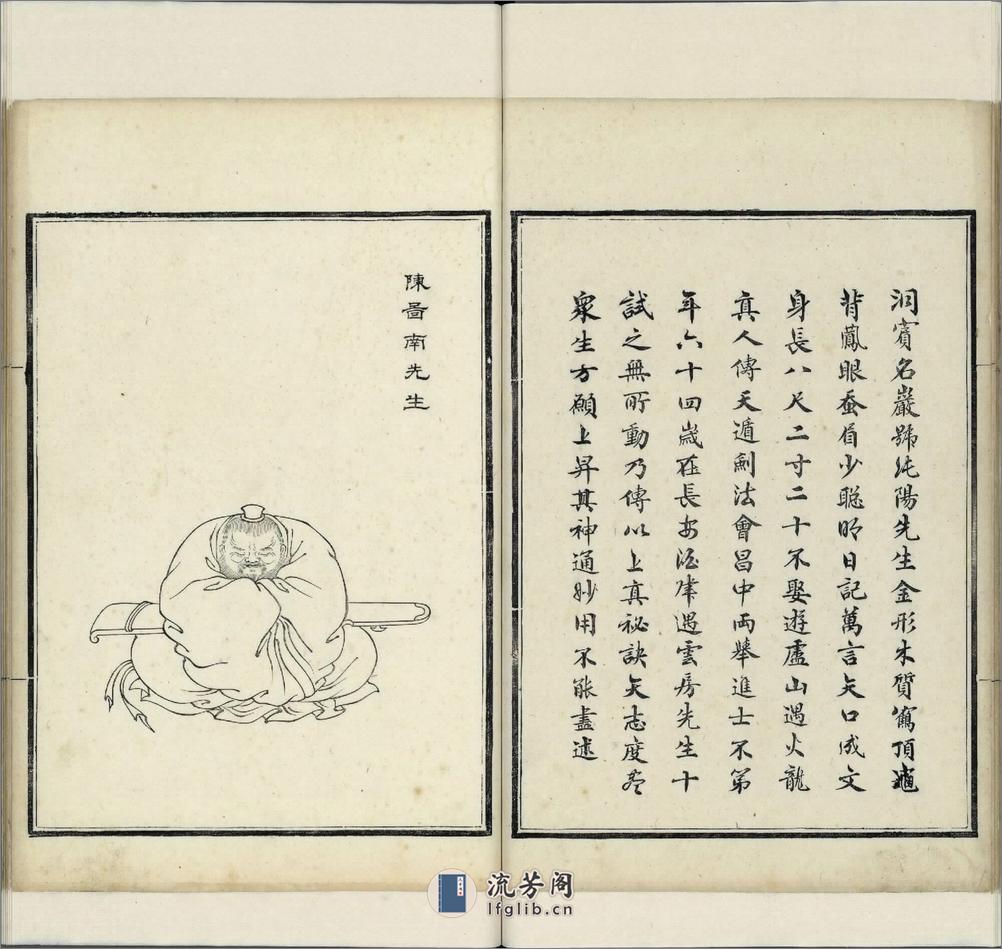 洞賓名巖號純陽先生金形木質鶴頂龜
背鳳眼蚕眉少聡明日記萬言矢口成文
身長八尺二寸二十不娶遊廬山遇火龍
真人傳天遁劍法會昌中兩舉進士不第
年六十四歲在長安酒肆遇雲房先生十
試之無所動乃傳以上真祕訣矢志度盡
眾生方願上昇其神通妙用不能盡述
陳啚南先生
流芳阁
lfglib.cn